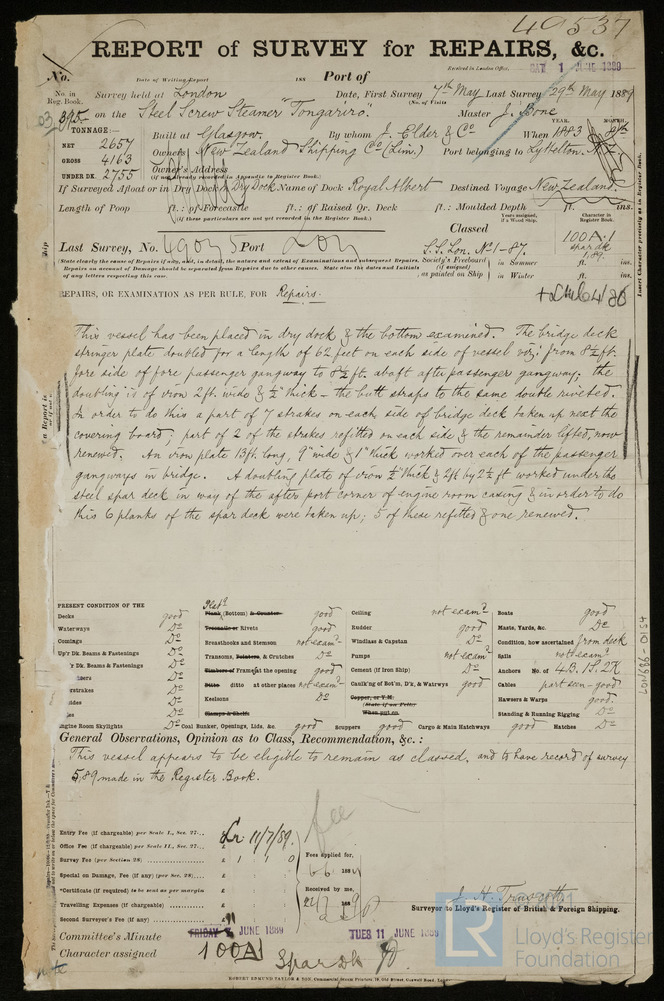 40537
REPORT of SURVEY for REPAIRS, &c.
No. Date of Writing Report 188 Port of Received in London Office, SAT 1 JUNE 1889
No. in Reg. Book. Survey held at London Date, First Survey 7th May Last Survey 29th May 1889
(No. of Visits
395 on the Steel Screw Steamer "Tongariro". Master J. Bone
TONNAGE:— YEAR. MONTH.
NET 2657 Built at Glasgow. By whom J. Elder & Co When 1883
GROSS 4163 Owners New Zealand Shipping Co (Lim.) Port belonging to Lyttelton.
UNDER DK. 2755 Owner's Address
(if not already recorded in Appendix to Register Book.)
If Surveyed Afloat or in Dry Dock Dry Dock Name of Dock Royal Albert Destined Voyage New Zealand.
Length of Poop ft.: of Forecastle ft.: of Raised Qr. Deck ft.: Moulded Depth ft. ins.
(If these particulars are not yet recorded in the Register Book.)
Years assigned, if a Wood Ship. Character in Register Book.
Classed 100A.1
spar dk
1,89.
Last Survey, No. 49045 Port Lon S.S. Lon. No 1-87.
(State clearly the cause of Repairs if any, and, in detail, the nature and extent of Examinations and subsequent Repairs.
Repairs on account of Damage should be separated from Repairs due to other causes. State also the dates and Initials
of any letters respecting this case.
Society's Freeboard (if assigned) as painted on Ship in Summer ft. ins.
in Winter ft. ins.
+LMC 4/88
REPAIRS, OR EXAMINATION AS PER RULE, FOR Repairs.
Insert Character precisely as in Register Book.
This vessel has been placed in dry dock & the bottom examined. The bridge deck
stringer plate doubled for a length of 62 feet on each side of vessel viz; from 8½ ft.
fore side of fore passenger gangway to 8½ ft. abaft after passenger gangway; the
doubling is of iron 2ft. wide & ½" thick – the butt straps to the same double riveted.
In order to do this a part of 7 strakes on each side of bridge deck taken up next the
covering board; part of 2 of the strakes refitted on each side & the remainder lifted, now
renewed. An iron plate 13ft. long, 9" wide & 1" thick worked over each of the passenger
gangways in bridge. A doubling plate of iron ½" thick & 2ft by 2½ ft worked under the
steel spar deck in way of the after port corner of engine room casing & in order to do
this 6 planks of the spar deck were taken up; 5 of these refitted & one renewed.
PRESENT CONDITION OF THE
Decks good
Waterways Do
Comings Do
Up'r Dk. Beams & Fastenings Do
Dk. Beams & Fastenings Do
Do
Do
Do
Engine Room Skylights Do
Plank (Bottom) & Counter good
Treenails or Rivets good
Breasthooks and Stemson not exam'd
Transoms, Pointers, & Crutches Do
Timbers or Frames at the opening good
Ditto ditto at other places not exam'd
Keelsons Do
Clamps & Shelfs
Coal Bunker, Openings, Lids, &c. good
Ceiling not exam'd
Rudder good
Windlass & Capstan Do
Pumps not exam'd
Cement (if Iron Ship) Do
Caulk'ng of Bot'm, D'k, & Watrwys good
Copper, or Y.M.
(State if on Felt
When put on
Scuppers good Cargo & Main Hatchways good
Boats good
Masts, Yards, &c. Do
Condition, how ascertained from deck
Sails not exam'd
Anchors No. of 4B. 1S. 2K
Cables part seen - good
Hawsers & Warps good.
Standing & Running Rigging Do
Hatches Do
LON686-0154
General Observations, Opinion as to Class, Recommendation, &c.:
This vessel appears to be eligible to remain as classed, and to have record of survey
5,89 made in the Register Book.
Entry Fee (if chargeable) per Scale I., Sec. 27... £ 11/7/89.
Office Fee (if chargeable) per Scale II., Sec. 27... £
Survey Fee (per Section 28) £
Special on Damage, Fee (if any) (per Sec. 28)... £
*Certificate (if required) to be sent as per margin £
Travelling Expenses (if chargeable) £
Second Surveyor's Fee (if any) £
fee
Fees applied for,
6-6 1889
Received by me,
188
Surveyor to Lloyd's Register of British & Foreign Shipping.
Committee's Minute FRIDAY 7 JUNE 1889 TUES 11 JUNE 1889
Character assigned 100A1 Spar Dk
ROBERT EDMUND TAYLOR & SON, Commercial Steam Printers, 19, Old Street, Goswell Road, London
LR
Lloyd's Register
Foundation